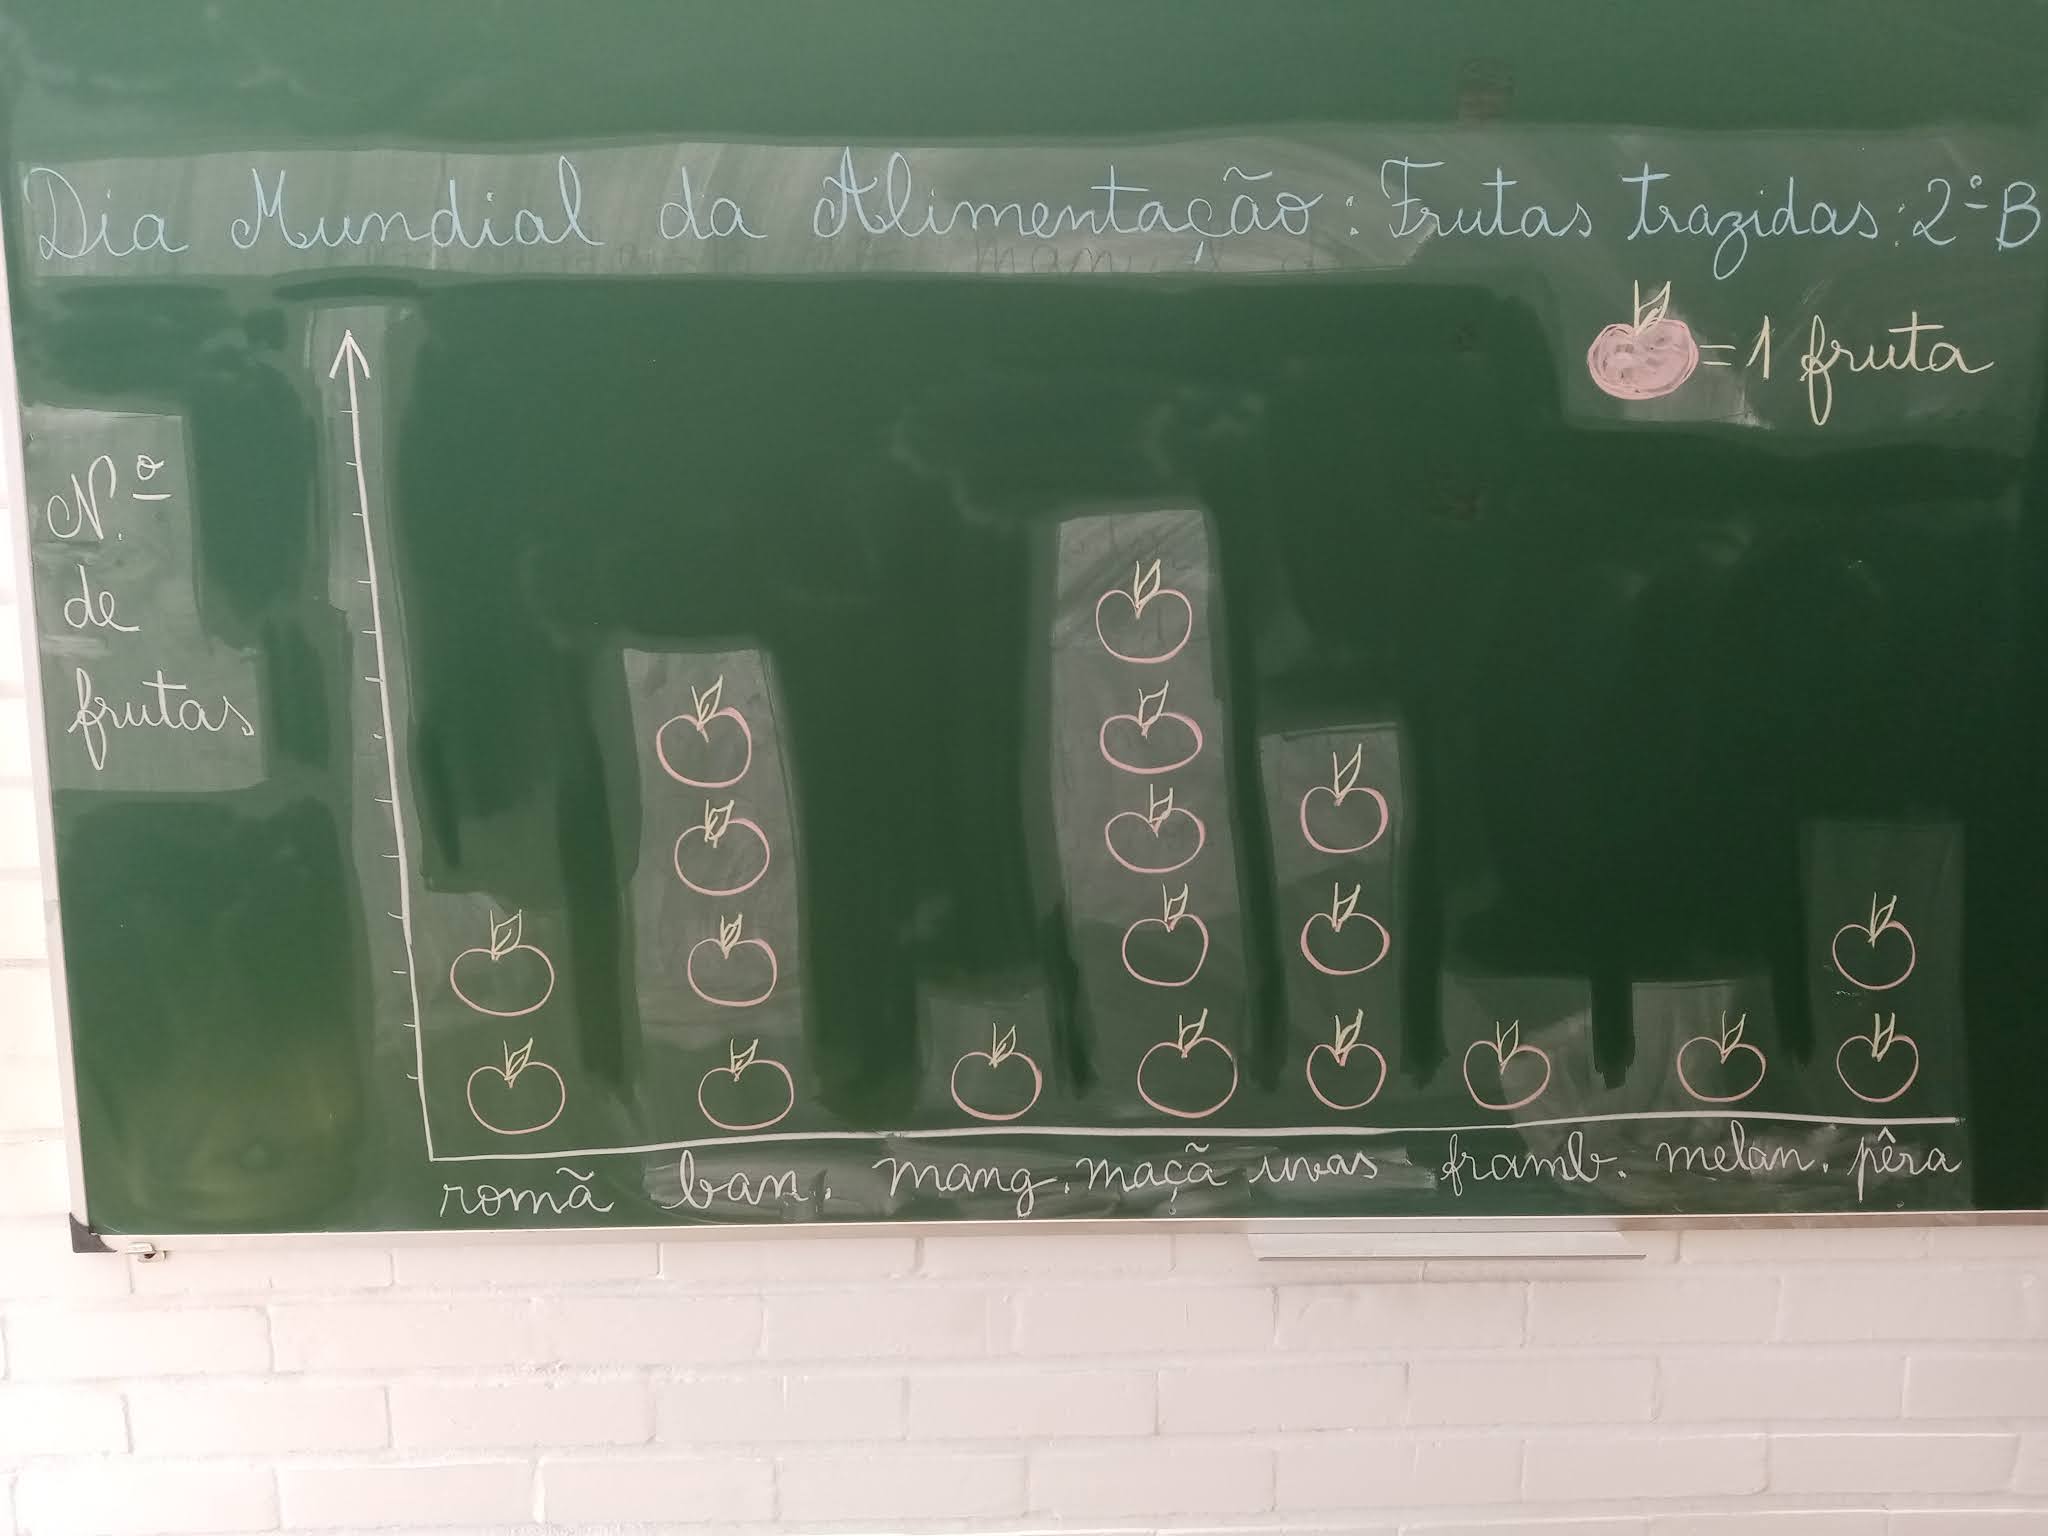 Dia Mundial da Alimentação: Frutas trazidas: 2º B
= 1 fruta
N.º
de
frutas
romã ban. mang. maçã uvas framb. melan. pêra